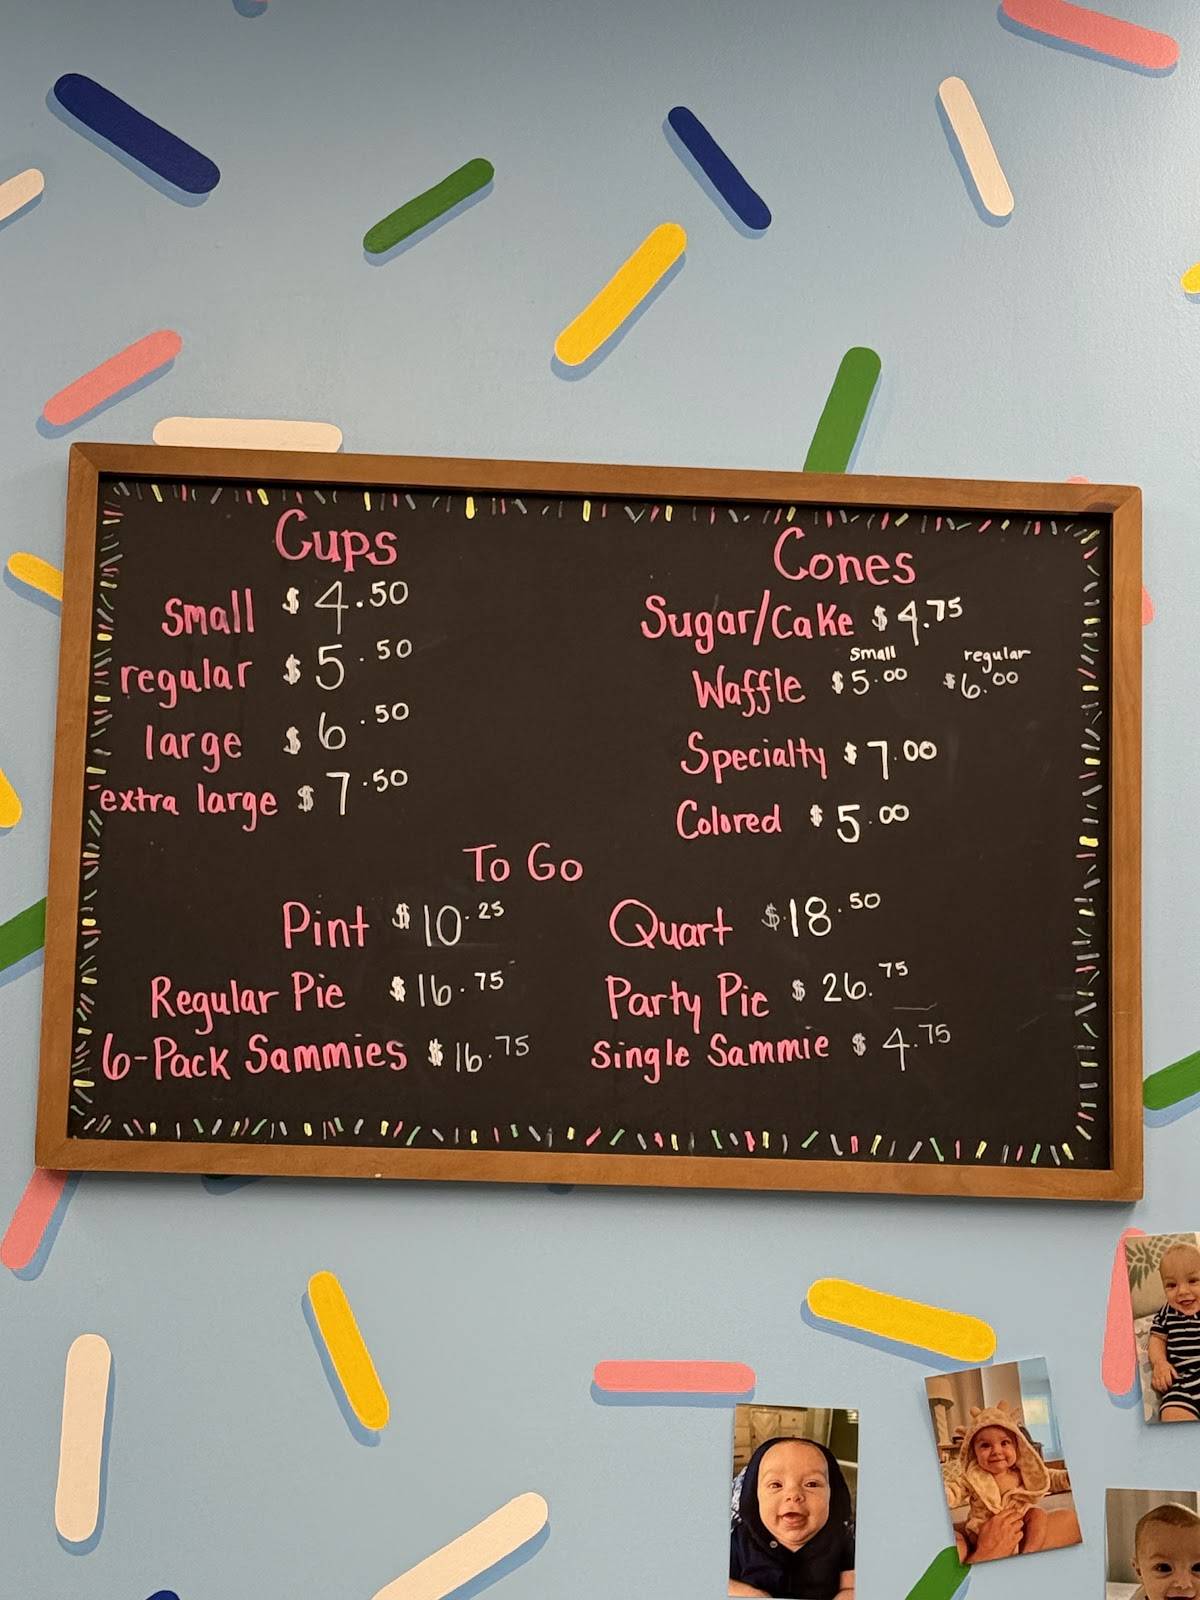 Cups
small $4.50
regular $5.50
large $6.50
extra large $7.50
Cones
Sugar/Cake $4.75
small regular
Waffle $5.00 $6.00
Specialty $7.00
Colored $5.00
To Go
Pint $10.25 Quart $18.50
Regular Pie $16.75 Party Pie $26.75
6-Pack Sammies $16.75 Single Sammie $4.75